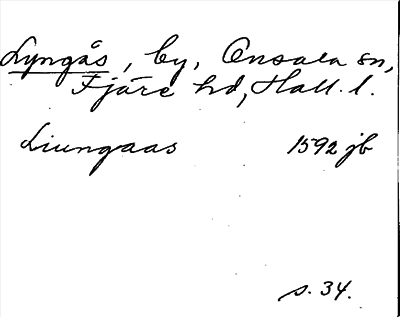 Lyngås, by, Onsala sn,
Fjäre hd, Hall. l.
Liungaas 1592 jb
s. 34.